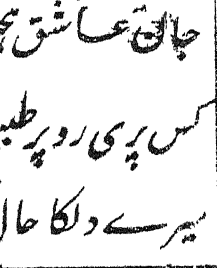 جان عاشق
کس پری رو پر
میرے دلکا